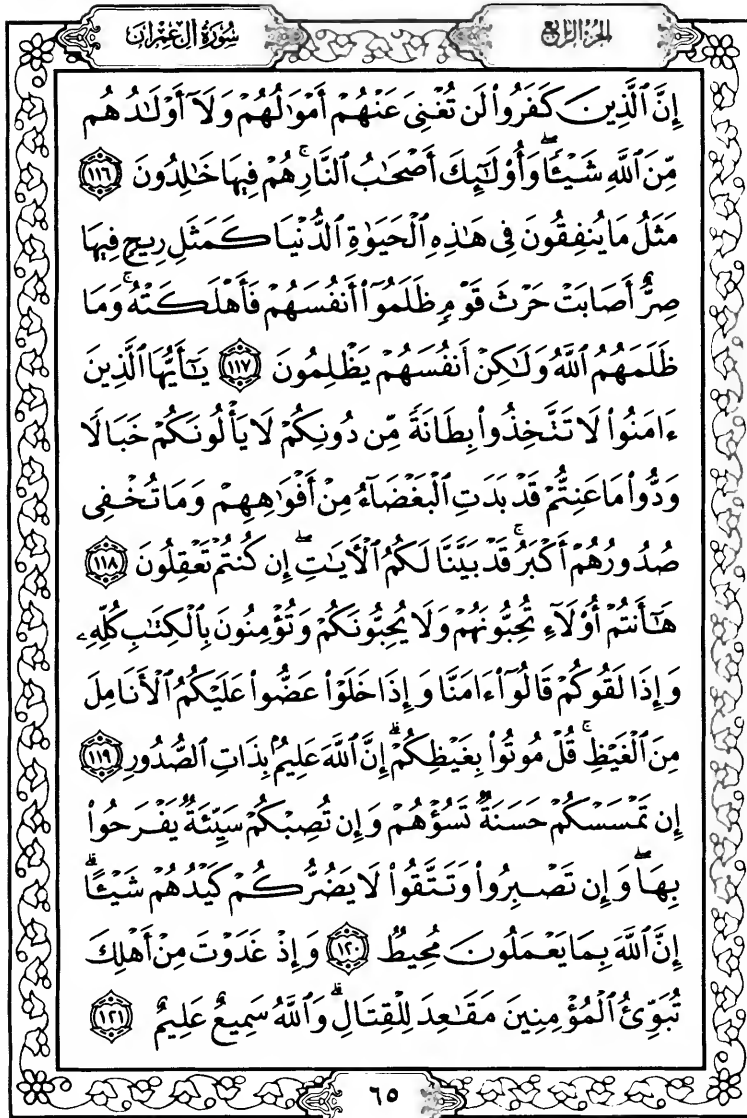 الجزء الرابع
سُورَةُ آلِ عِمْرَان
إِنَّ ٱلَّذِينَ كَفَرُوا۟ لَن تُغْنِىَ عَنْهُمْ أَمْوَٰلُهُمْ وَلَآ أَوْلَٰدُهُم
مِّنَ ٱللَّهِ شَيْـًٔاۖ وَأُو۟لَٰٓئِكَ أَصْحَٰبُ ٱلنَّارِۚ هُمْ فِيهَا خَٰلِدُونَ ١١٦
مَثَلُ مَا يُنفِقُونَ فِى هَٰذِهِ ٱلْحَيَوٰةِ ٱلدُّنْيَا كَمَثَلِ رِيحٍ فِيهَا
صِرٌّ أَصَابَتْ حَرْثَ قَوْمٍ ظَلَمُوٓا۟ أَنفُسَهُمْ فَأَهْلَكَتْهُۚ وَمَا
ظَلَمَهُمُ ٱللَّهُ وَلَٰكِنْ أَنفُسَهُمْ يَظْلِمُونَ ١١٧ يَٰٓأَيُّهَا ٱلَّذِينَ
ءَامَنُوا۟ لَا تَتَّخِذُوا۟ بِطَانَةً مِّن دُونِكُمْ لَا يَأْلُونَكُمْ خَبَالًا
وَدُّوا۟ مَا عَنِتُّمْ قَدْ بَدَتِ ٱلْبَغْضَآءُ مِنْ أَفْوَٰهِهِمْ وَمَا تُخْفِى
صُدُورُهُمْ أَكْبَرُۚ قَدْ بَيَّنَّا لَكُمُ ٱلْءَايَٰتِۖ إِن كُنتُمْ تَعْقِلُونَ ١١٨
هَٰٓأَنتُمْ أُو۟لَآءِ تُحِبُّونَهُمْ وَلَا يُحِبُّونَكُمْ وَتُؤْمِنُونَ بِٱلْكِتَٰبِ كُلِّهِۦ
وَإِذَا لَقُوكُمْ قَالُوٓا۟ ءَامَنَّا وَإِذَا خَلَوْا۟ عَضُّوا۟ عَلَيْكُمُ ٱلْأَنَامِلَ
مِنَ ٱلْغَيْظِۚ قُلْ مُوتُوا۟ بِغَيْظِكُمْۗ إِنَّ ٱللَّهَ عَلِيمٌۢ بِذَاتِ ٱلصُّدُورِ ١١٩
إِن تَمْسَسْكُمْ حَسَنَةٌ تَسُؤْهُمْ وَإِن تُصِبْكُمْ سَيِّئَةٌ يَفْرَحُوا۟
بِهَاۖ وَإِن تَصْبِرُوا۟ وَتَتَّقُوا۟ لَا يَضُرُّكُمْ كَيْدُهُمْ شَيْـًٔاۗ
إِنَّ ٱللَّهَ بِمَا يَعْمَلُونَ مُحِيطٌ ١٢٠ وَإِذْ غَدَوْتَ مِنْ أَهْلِكَ
تُبَوِّئُ ٱلْمُؤْمِنِينَ مَقَٰعِدَ لِلْقِتَالِۗ وَٱللَّهُ سَمِيعٌ عَلِيمٌ ١٢١
٦٥